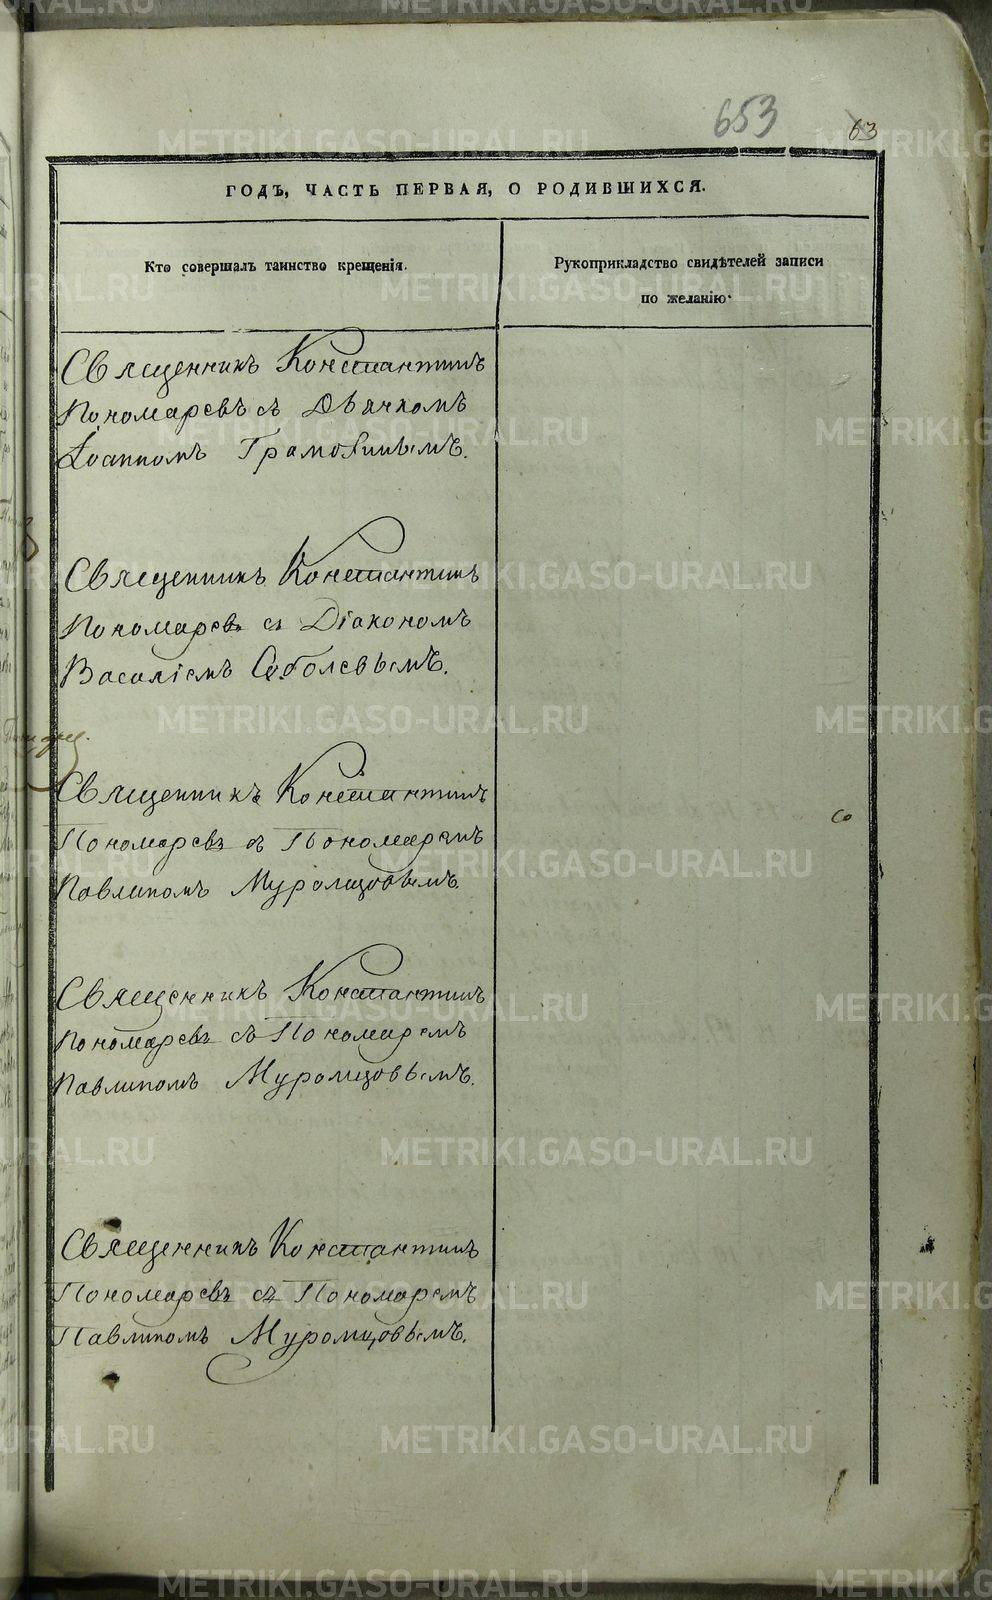 653
63
ГОДЪ, ЧАСТЬ ПЕРВАЯ, О РОДИВШИХСЯ.
Кто совершалъ таинство крещенія.
Рукоприкладство свидѣтелей записи
по желанію.
Священникъ Константинъ
Пономаревъ съ Дьячкомъ
Іоанномъ
Священникъ Константинъ
Пономаревъ съ Діакономъ
Василіемъ Соболевымъ.
Священникъ Константинъ
Пономаревъ съ Пономаремъ
Павлиномъ Муромцовымъ.
Священникъ Константинъ
Пономаревъ съ Пономаремъ
Павлиномъ Муромцовымъ.
Священникъ Константинъ
Пономаревъ съ Пономаремъ
Павлиномъ Муромцовымъ.
METRIKI.GASO-URAL.RU